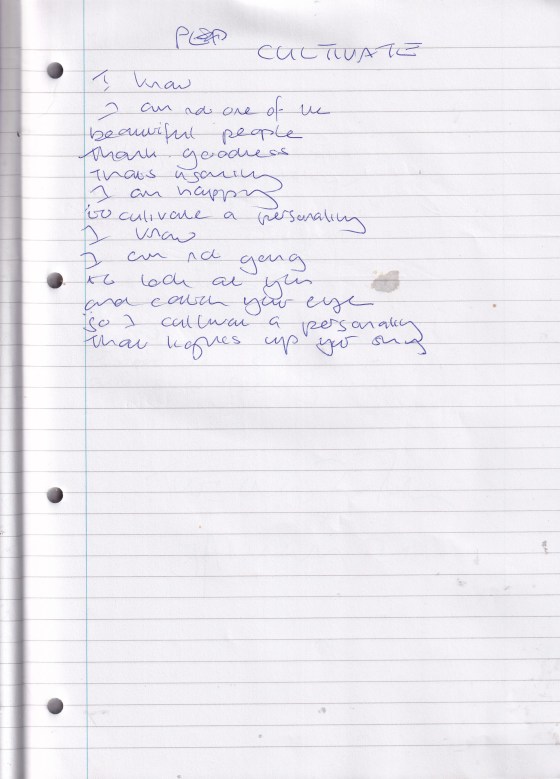 CULTIVATE
I know
I am not one of the
beautiful people
thank goodness
thats
I am happy
to cultivate a personality
I know
I am not going
to look at you
and catch your eye
so I cultivate a personality
that up your